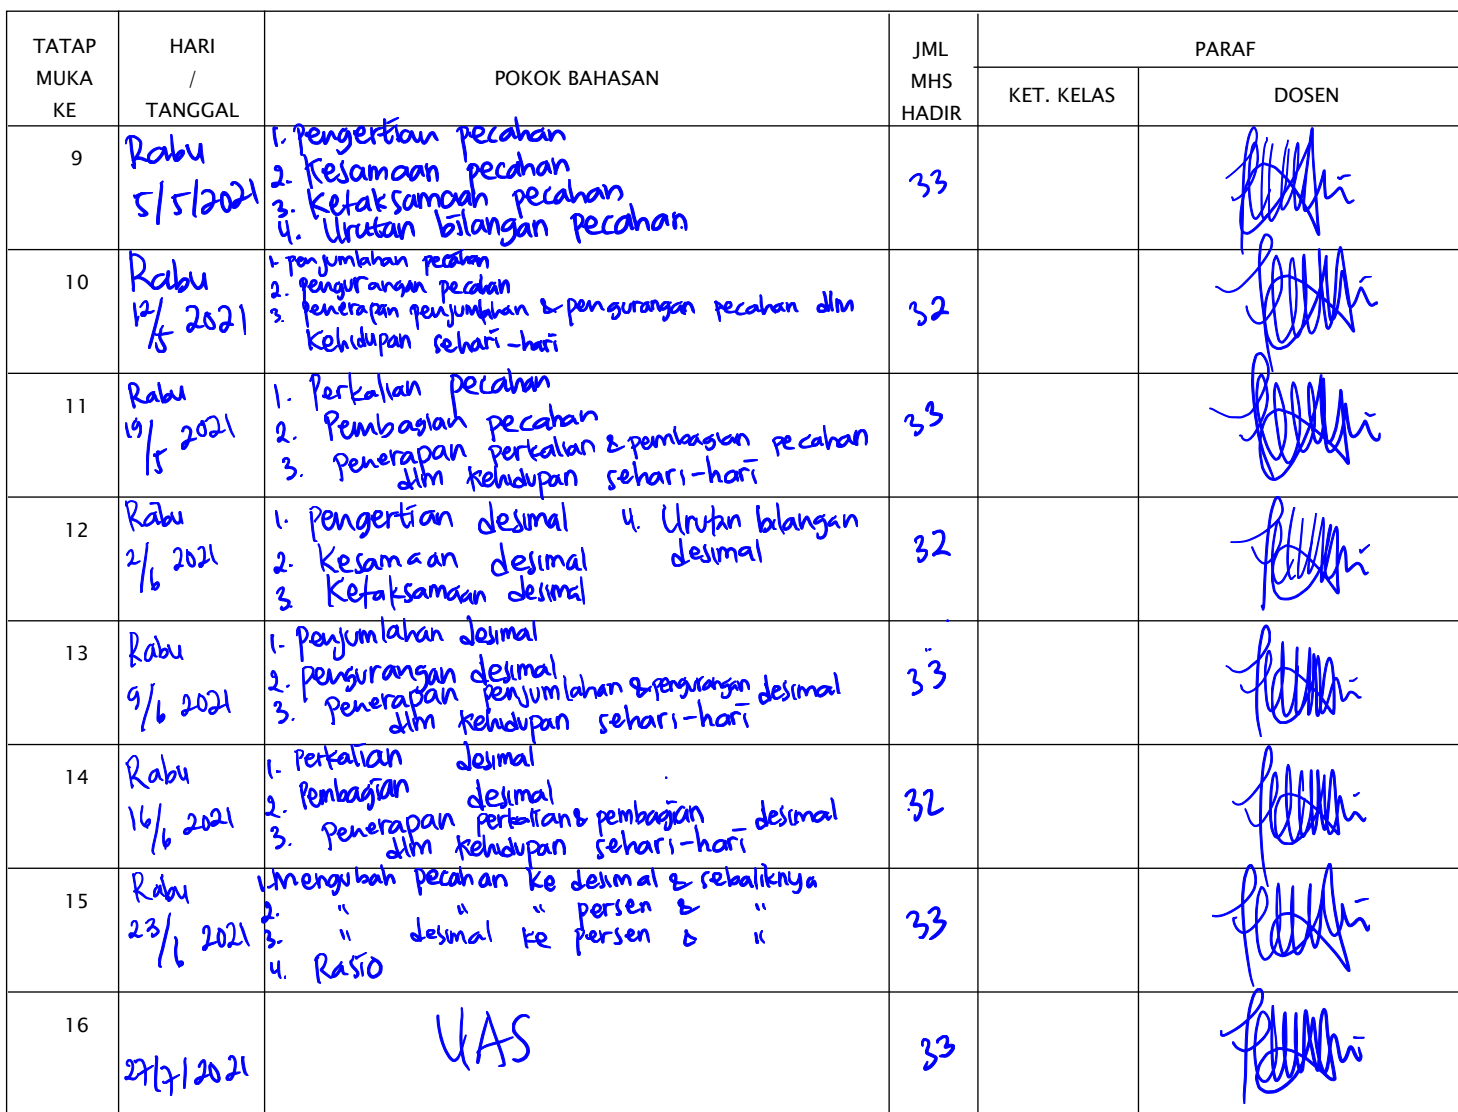 TATAP MUKA KE
HARI / TANGGAL
POKOK BAHASAN
JML MHS HADIR
PARAF
KET. KELAS
DOSEN
9
Rabu
5/5/2021
1. Pengertian pecahan
2. Kesamaan pecahan
3. Ketaksamaan pecahan
4. Urutan bilangan pecahan
33
10
Rabu
12/5 2021
1. penjumlahan pecahan
2. pengurangan pecahan
3. penerapan penjumlahan & pengurangan pecahan dlm
kehidupan sehari-hari
32
11
Rabu
19/5 2021
1. Perkalian pecahan
2. Pembagian pecahan
3. Penerapan perkalian & pembagian pecahan
dlm kehidupan sehari-hari
33
12
Rabu
2/6 2021
1. Pengertian desimal
2. Kesamaan desimal
3. Ketaksamaan desimal
4. Urutan bilangan
desimal
32
13
Rabu
9/6 2021
1. Penjumlahan desimal
2. pengurangan desimal
3. Penerapan penjumlahan & pengurangan desimal
dlm kehidupan sehari-hari
33
14
Rabu
16/6 2021
1. Perkalian desimal
2. Pembagian desimal
3. Penerapan perkalian & pembagian desimal
dlm kehidupan sehari-hari
32
15
Rabu
23/6 2021
1. Mengubah pecahan ke desimal & sebaliknya
2. " " " persen & "
3. " desimal ke persen & "
4. Rasio
33
16
27/7/2021
UAS
33